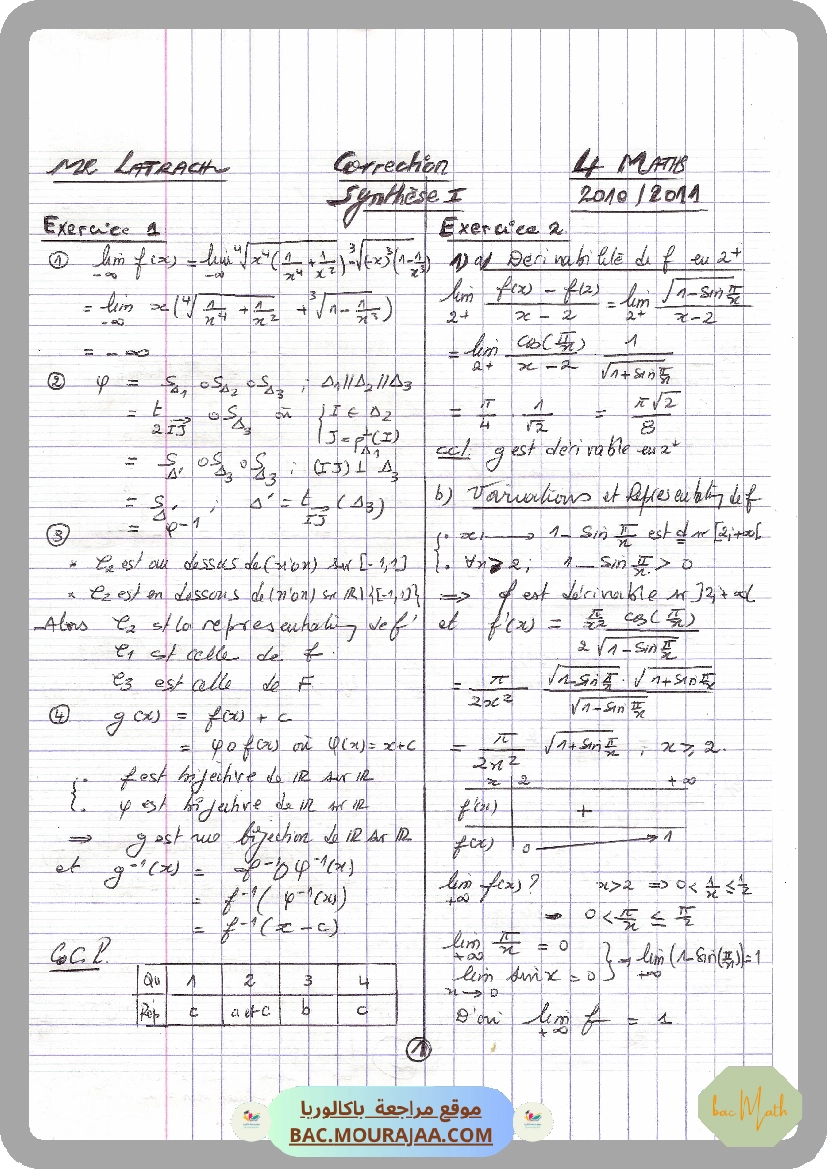 MR LATRACH
Correction
Synthèse I
4 MATHS
2010/2011
Exercice 1
① lim_{-∞} f(x) = lim_{-∞} ⁴√(x⁴(1/x⁴ + 1/x²)) - ³√((-x)³(1 - 1/x³))
= lim_{-∞} x(⁴√(1/x⁴ + 1/x²) + ³√(1 - 1/x³))
= -∞
② φ = S_{Δ1} o S_{Δ2} o S_{Δ3} ; Δ1 // Δ2 // Δ3
= t_{2IJ} o S_{Δ3} où { I ∈ Δ2
J = p_{Δ1}^⊥(I)
= S_{Δ'} o S_{Δ3} o S_{Δ3} ; (IJ) ⊥ Δ3
= S_{Δ'} ; Δ' = t_{IJ}(Δ3)
= φ⁻¹
③
* C2 est au dessus de (x'ox) sur [-1,1]
* C2 est en dessous de (x'ox) sr IR\{[-1,1]}
Alors C2 est la representation de f'
C1 est celle de f.
C3 est celle de F
④ g(x) = f(x) + c
= φof(x) où φ(x) = x+c
{ . f est bijective de IR sur IR
. φ est bijective de IR sr IR
⟹ g est une bijection de IR sur IR
et g⁻¹(x) = f⁻¹oφ⁻¹(x)
= f⁻¹(φ⁻¹(x))
= f⁻¹(x - c)
Qu 1 2 3 4
Rép c a et c b c
Exercice 2
1) a) Dérivabilité de f en 2⁺
lim_{2⁺} (f(x) - f(2))/(x - 2) = lim_{2⁺} √(1 - sin π/x)/(x - 2)
= lim_{2⁺} cos(π/x)/(x - 2) · 1/√(1 + sin π/x)
= π/4 · 1/√2 = π√2/8
ccl. g est dérivable en 2⁺
b) Variations et Représentation de f
{ . x ⟼ 1 - sin π/x est d sr [2,+∞[
. ∀x > 2 ; 1 - sin π/x > 0
⟹ f est dérivable sr ]2,+∞[
et f'(x) = π/x² cos(π/x) / 2√(1 - sin π/x)
= π/2x² · √(1 - sin π/x) · √(1 + sin π/x) / √(1 - sin π/x)
= π/2x² √(1 + sin π/x) ; x ⩾ 2.
x 2 +∞
f'(x) +
f(x) 0 → 1
lim_{+∞} f(x) ? x > 2 ⟹ 0 < 1/x ≤ 1/2
⟹ 0 < π/x ≤ π/2
lim_{+∞} π/x = 0
lim_{x→0} sin x = 0 } ⟹ lim_{+∞} (1 - sin(π/x)) = 1
D'où lim_{+∞} f = 1
1
موقع مراجعة باكالوريا
BAC.MOURAJAA.COM
bac Math